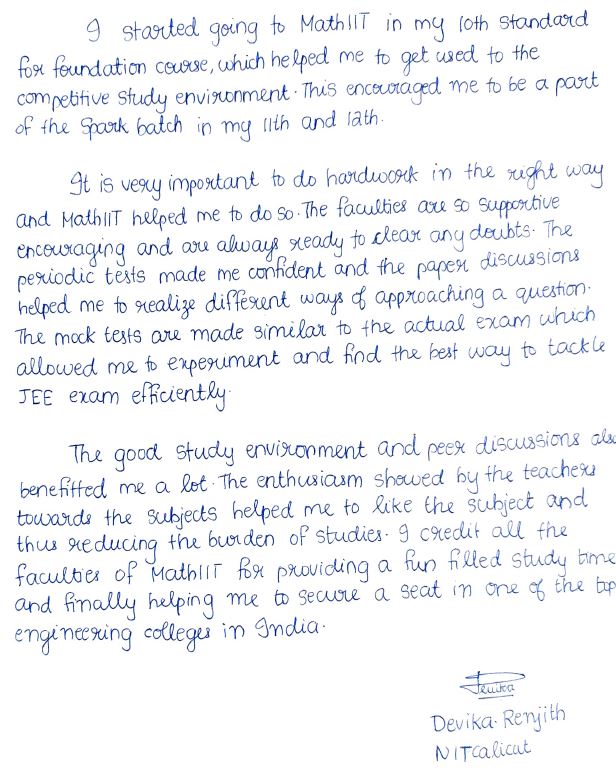 I started going to MathIIT in my 10th standard
for foundation course, which helped me to get used to the
competitive study environment. This encouraged me to be a part
of the Spark batch in my 11th and 12th.
It is very important to do hardwork in the right way
and MathIIT helped me to do so. The faculties are so supportive
encouraging and are always ready to clear any doubts. The
periodic tests made me confident and the paper discussions
helped me to realize different ways of approaching a question.
The mock tests are made similar to the actual exam which
allowed me to experiment and find the best way to tackle
JEE exam efficiently.
The good study environment and peer discussions also
benefitted me a lot. The enthusiasm showed by the teachers
towards the subjects helped me to like the subject and
thus reducing the burden of studies. I credit all the
faculties of MathIIT for providing a fun filled study time
and finally helping me to secure a seat in one of the top
engineering colleges in India.
Devika
Devika. Renjith
NITcalicut